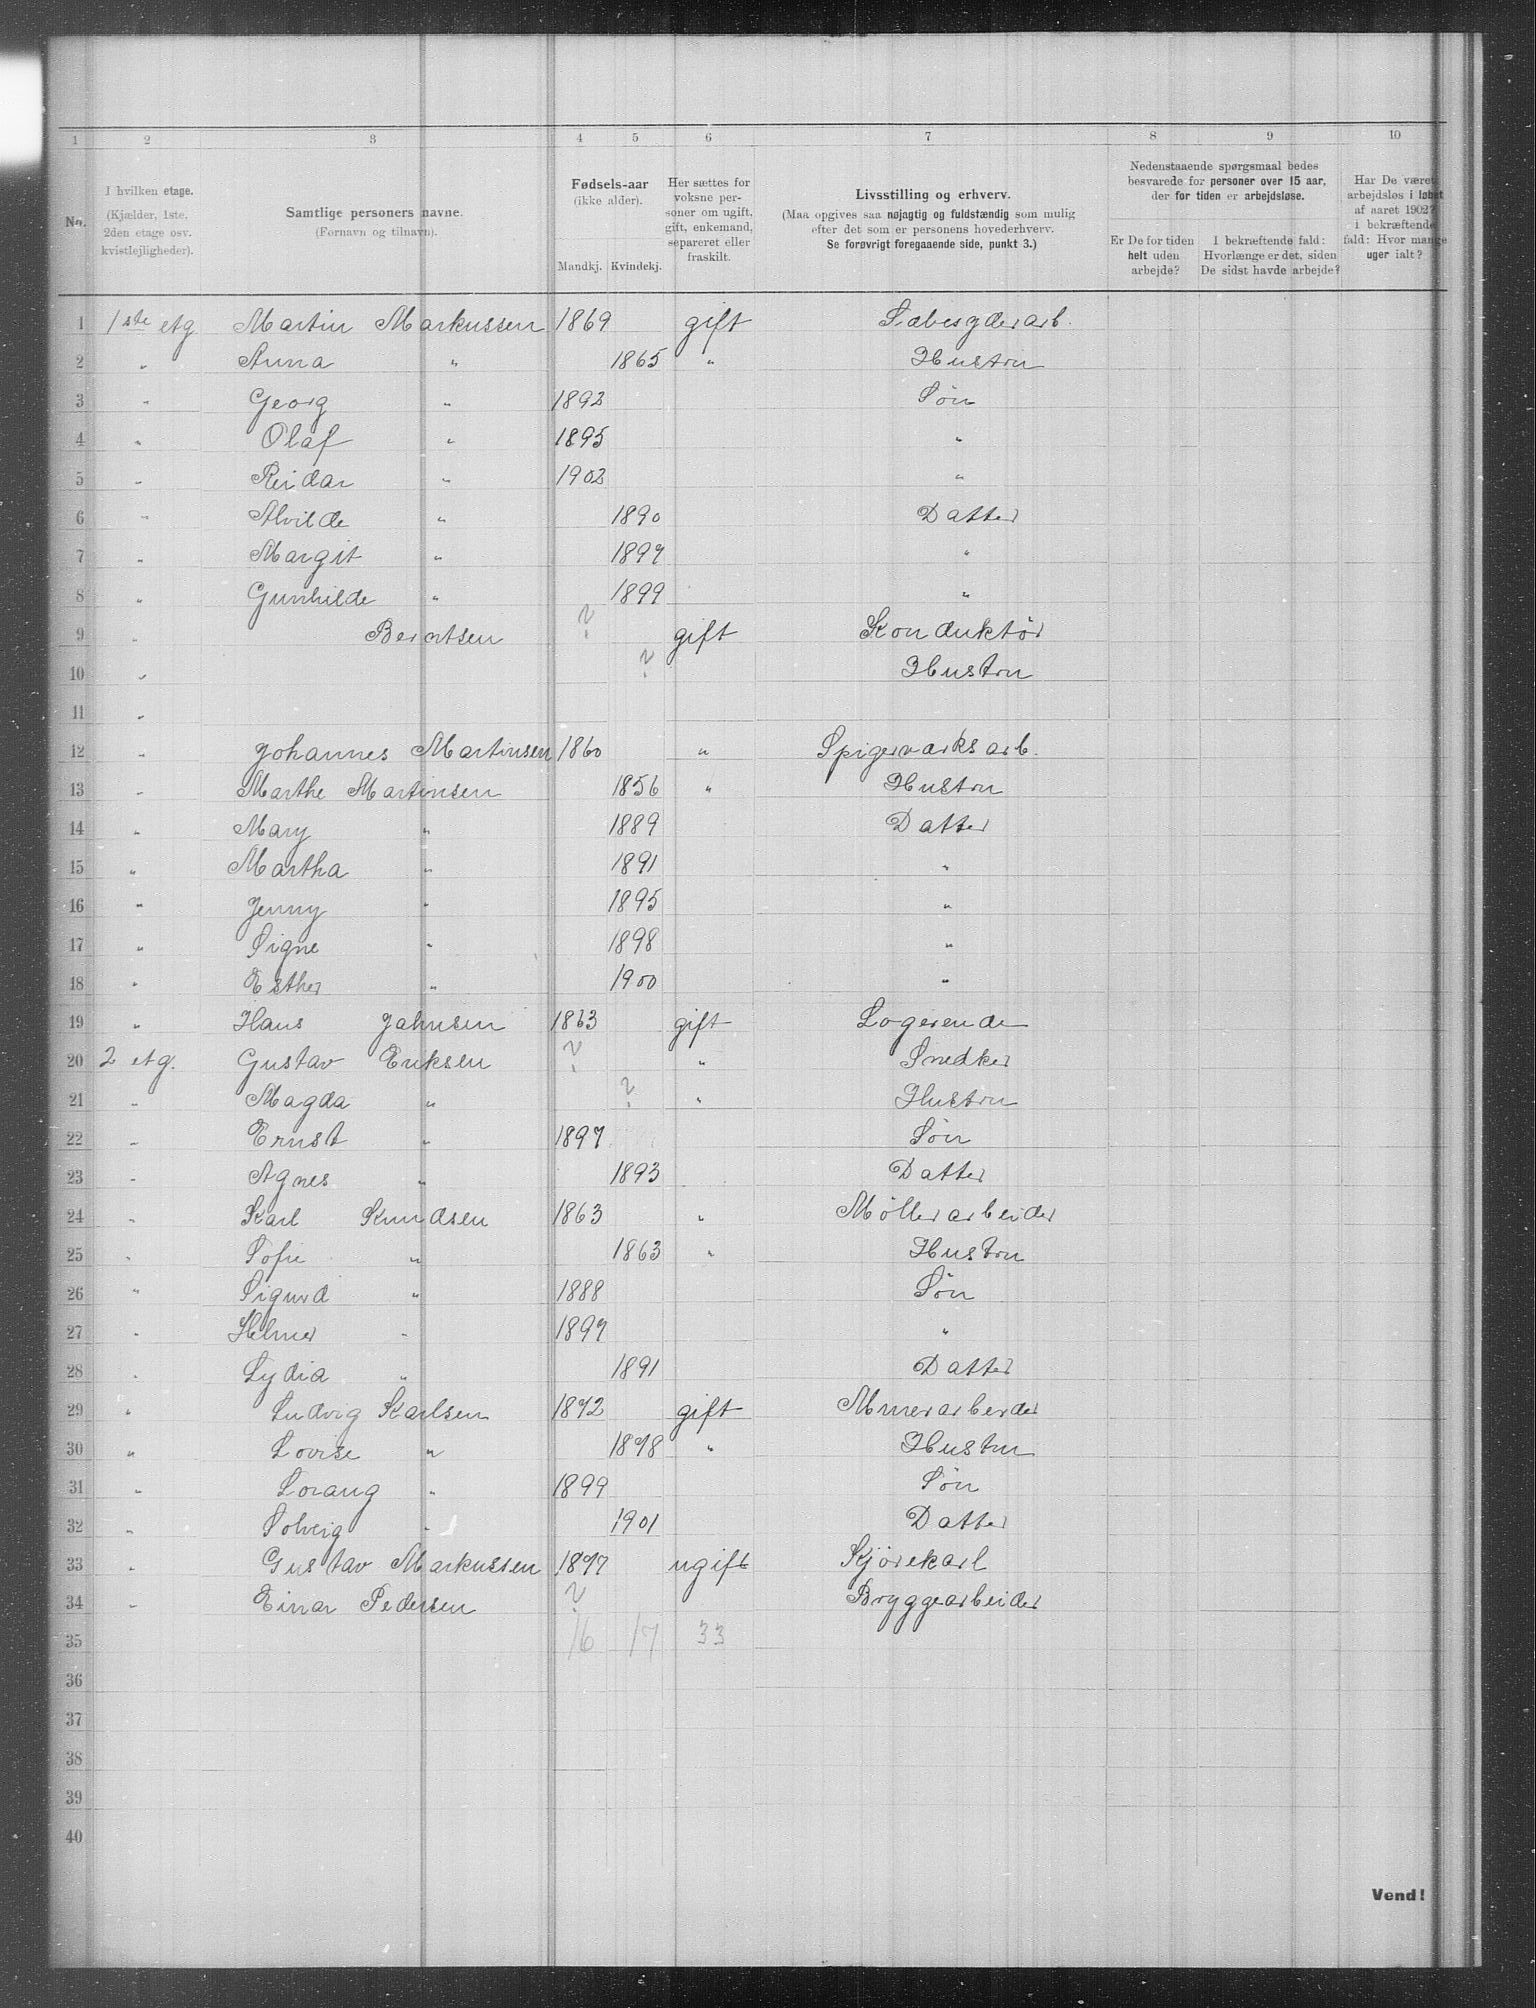 1 2 3 4 5 6 7 8 9 10
No.
I hvilken etage.
(Kjælder, 1ste, 2den etage osv. kvistlejligheder).
Samtlige personers navne.
(Fornavn og tilnavn).
Fødsels-aar
(ikke alder).
Mandkj. Kvindekj.
Her sættes for voksne personer om ugift, gift, enkemand, separeret eller fraskilt.
Livsstilling og erhverv.
(Maa opgives saa nøjagtig og fuldstændig som mulig
efter det som er personens hovederhverv.
Se forøvrigt foregaaende side, punkt 3.)
Nedenstaaende spørgsmaal bedes
besvarede for personer over 15 aar,
der for tiden er arbejdsløse.
Er De for tiden helt uden arbejde?
I bekræftende fald: Hvorlænge er det, siden De sidst havde arbejde?
Har De været arbejdsløs i løbet af aaret 1902? i bekræftende fald: Hvor mange uger ialt?
1 1ste etg Martin Markussen 1869 gift Sæbesyderarb.
2 " Anna " 1865 " Hustru
3 " Georg " 1892 Søn
4 " Olaf " 1895 "
5 " Reidar " 1902 "
6 " Alvilde " 1890 Datter
7 " Margit " 1897 "
8 " Gunhilde " 1899 "
9 " Berntsen ? gift Konduktør
10 " ? Hustru
11 "
12 " Johannes Martinsen 1860 " Spigerværksarb.
13 " Marthe Martinsen 1856 " Hustru
14 " Mary " 1889 Datter
15 " Martha " 1891 "
16 " Jenny " 1895 "
17 " Signe " 1898 "
18 " Esther " 1900 "
19 " Hans Johnsen 1863 gift Logerende
20 2 etg. Gustav Eriksen ? " Snedker
21 " Magda " ? " Hustru
22 " Ernst " 1897 Søn
23 " Agnes " 1893 Datter
24 " Karl Knudsen 1863 " Møllerarbeider
25 " Sofie " 1863 " Hustru
26 " Sigurd " 1888 Søn
27 " Helmer " 1897 "
28 " Lydia " 1891 Datter
29 " Ludvig Karlsen 1872 gift Murerarbeider
30 " Lovise " 1878 " Hustru
31 " Lorang " 1899 Søn
32 " Solveig " 1901 Datter
33 " Gustav Markussen 1877 ugift Kjørekarl
34 " Einar Pedersen ? Bryggearbeider
35 16 17 33
36
37
38
39
40
Vend!